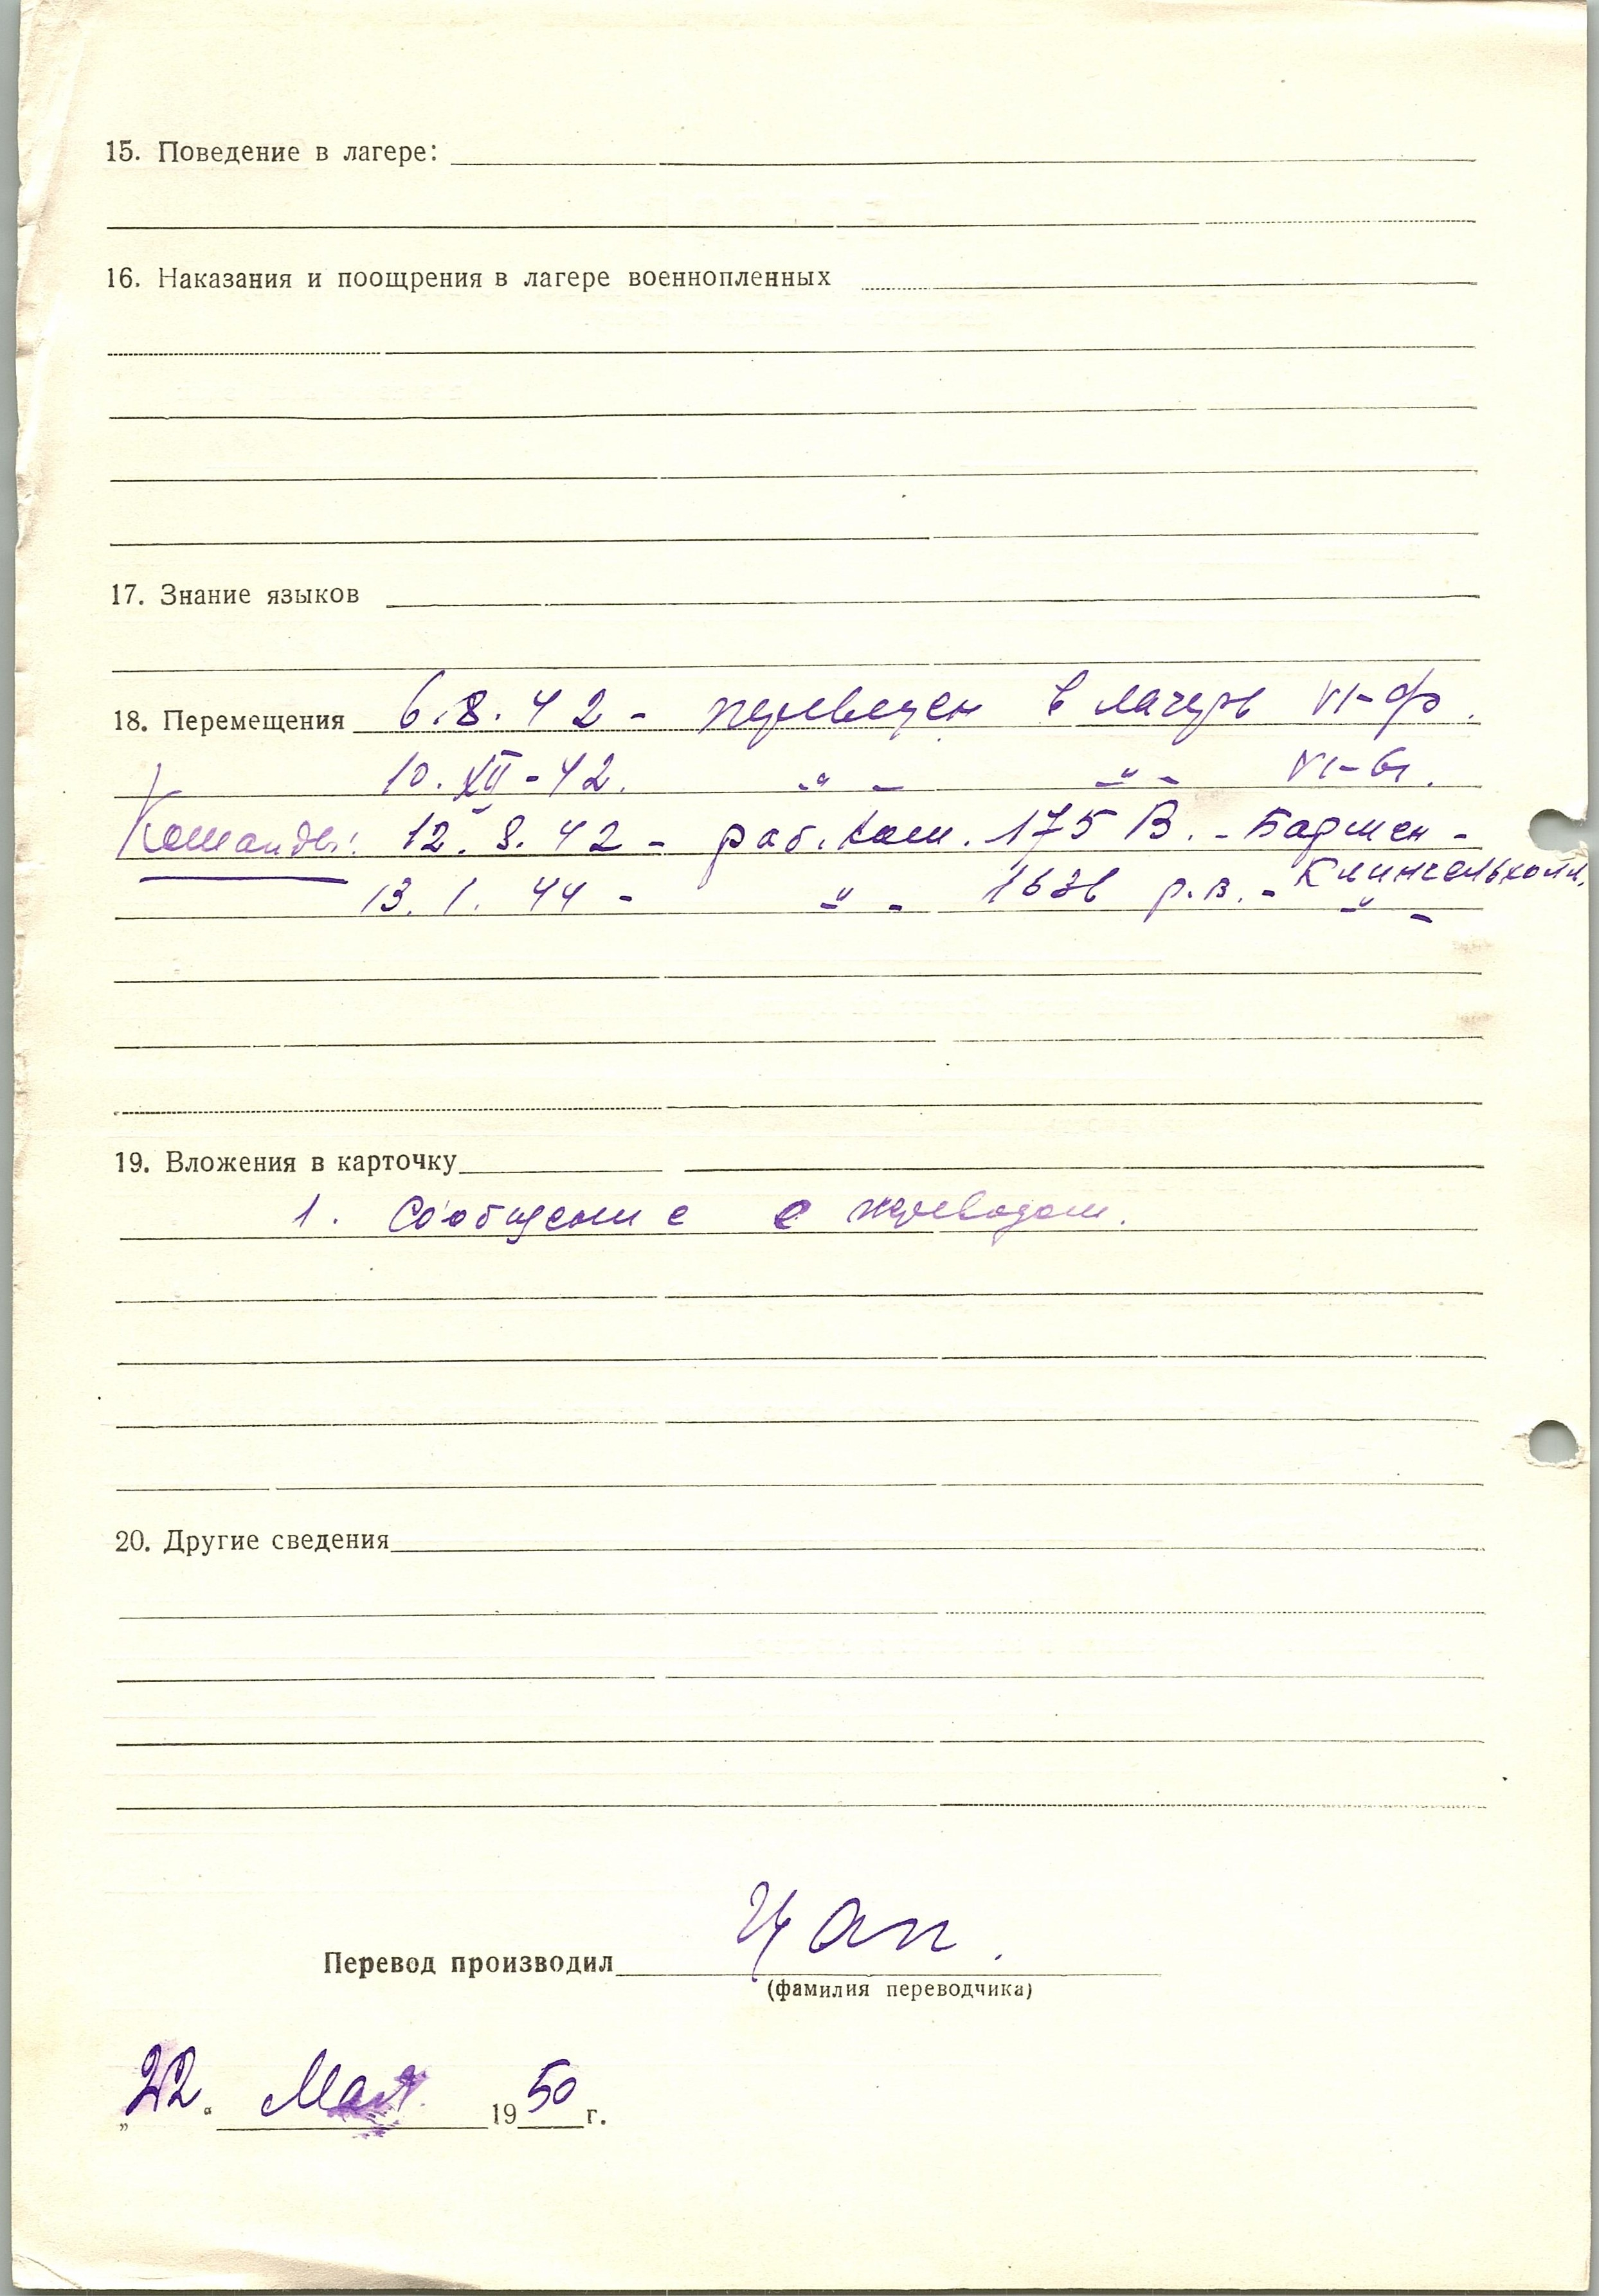 15. Поведение в лагере:
16. Наказания и поощрения в лагере военнопленных
17. Знание языков
18. Перемещения 6.8.42 - переведен в лагерь VI-ф.
10.XII-42. -"- -"- VI-
Команды: 12.8.42 - раб. ком. 175 В. - Бармен -
Клингельхолл.
13.1.44 - -"- р.в. - -"-
19. Вложения в карточку
1. Сообщение с переводом.
20. Другие сведения
Перевод производил Цап.
(фамилия переводчика)
„22" Мая 1950 г.